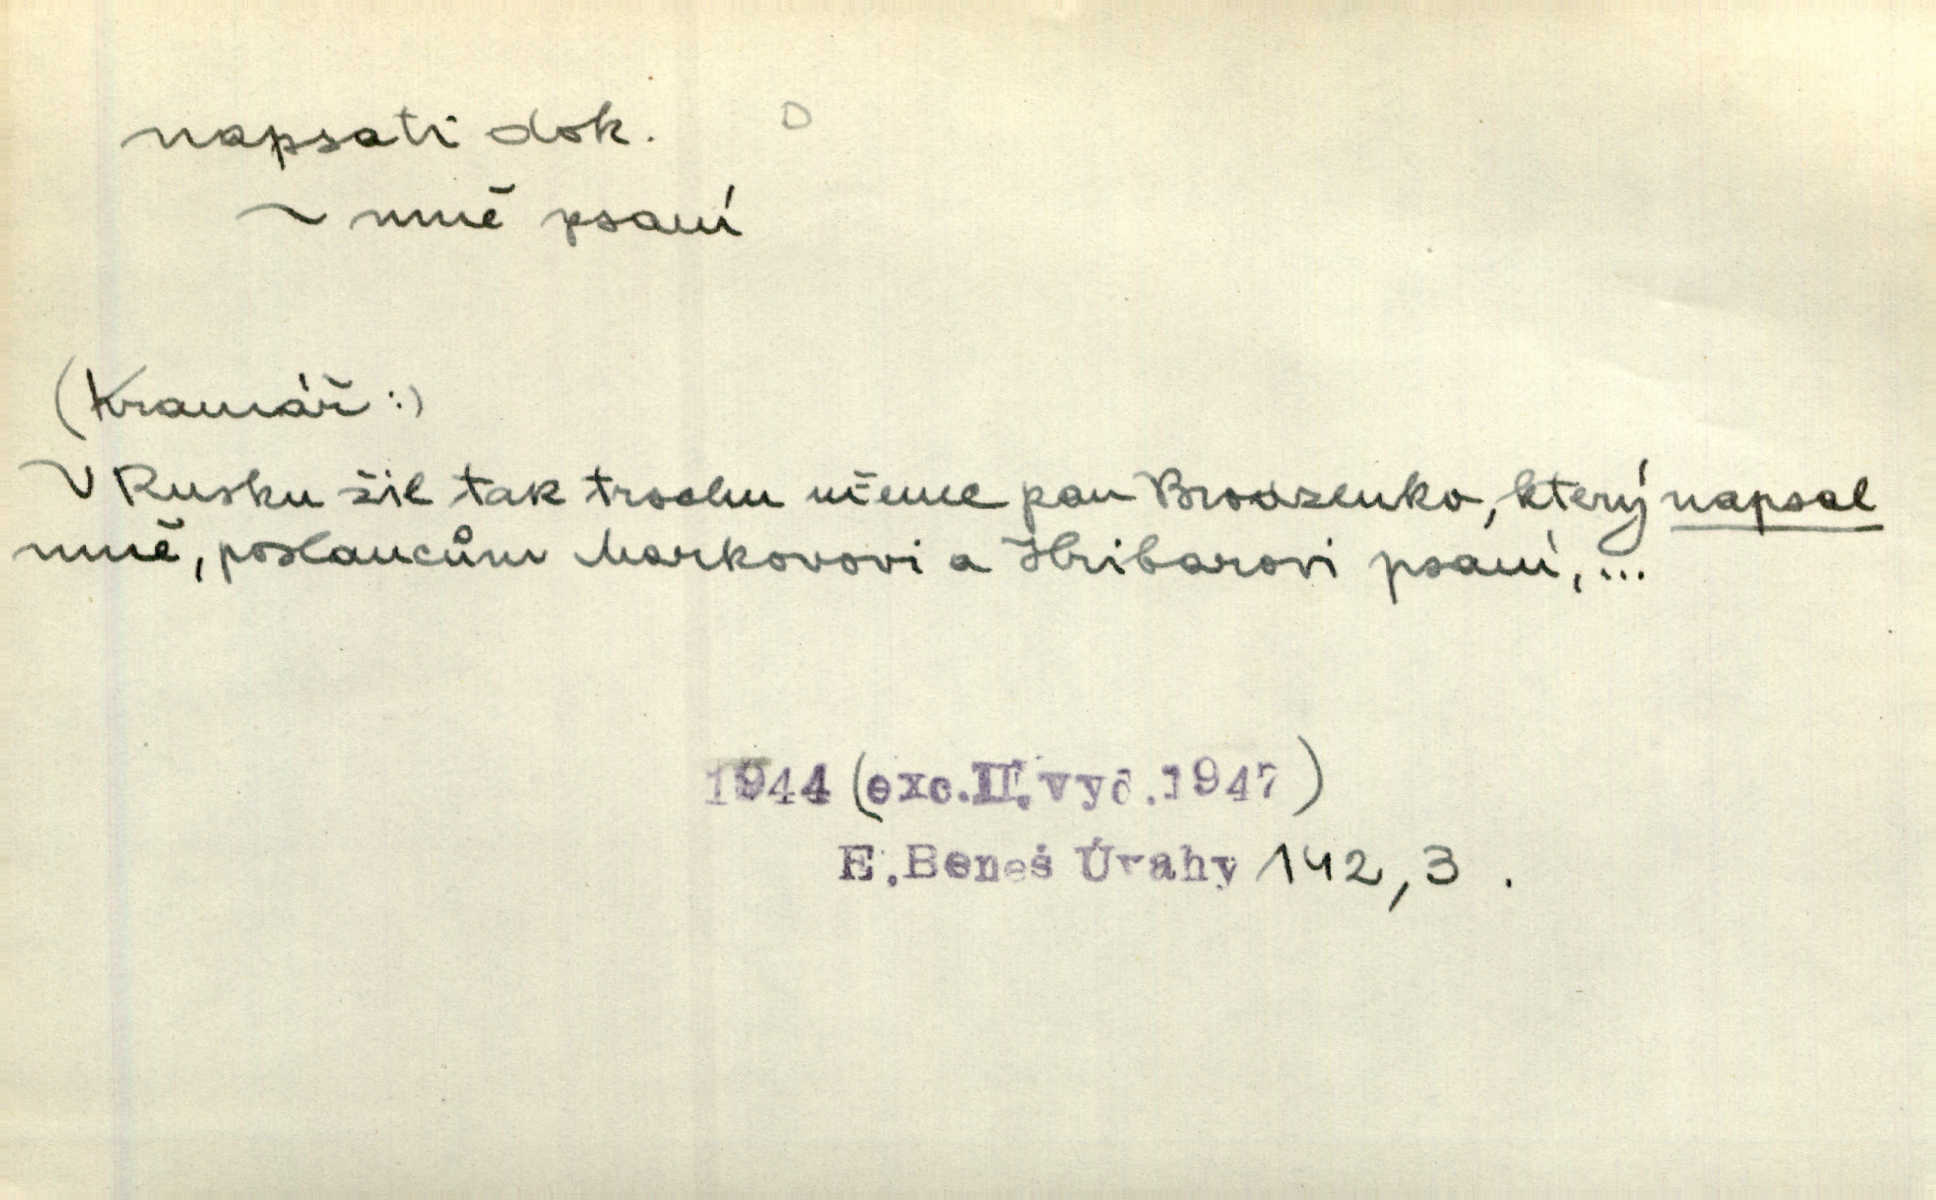 napsati dok. D
~ mně psaní
(Kramář:)
V Rusku žil tak trochu němec pan Brodzenko, který napsal
mně, poslancům Markovovi a Hribarovi psaní, ...
1944 (exc.II.vyd.1947)
E.Beneš Úvahy 142,3.